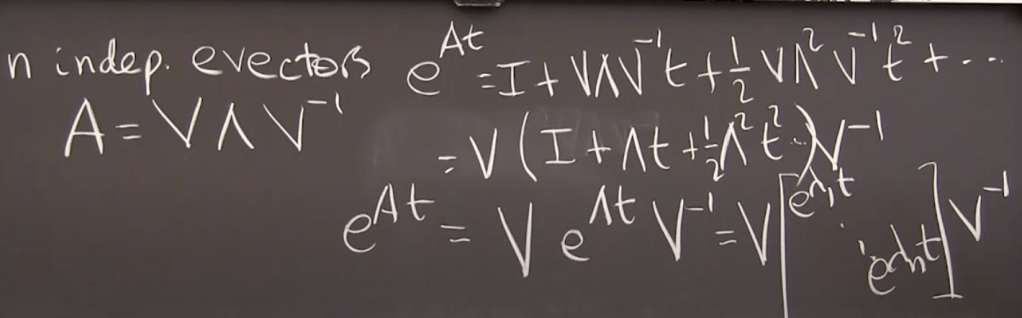 n indep. evectors e^{At} = I + VΛV^{-1}t + \frac{1}{2} VΛ^2V^{-1}t^2 + ...
A = VΛV^{-1}
= V(I + Λt + \frac{1}{2}Λ^2t^2..)V^{-1}
e^{At} = V e^{Λt} V^{-1} = V [e^{λ_1t} ⋱ e^{λ_nt}] V^{-1}